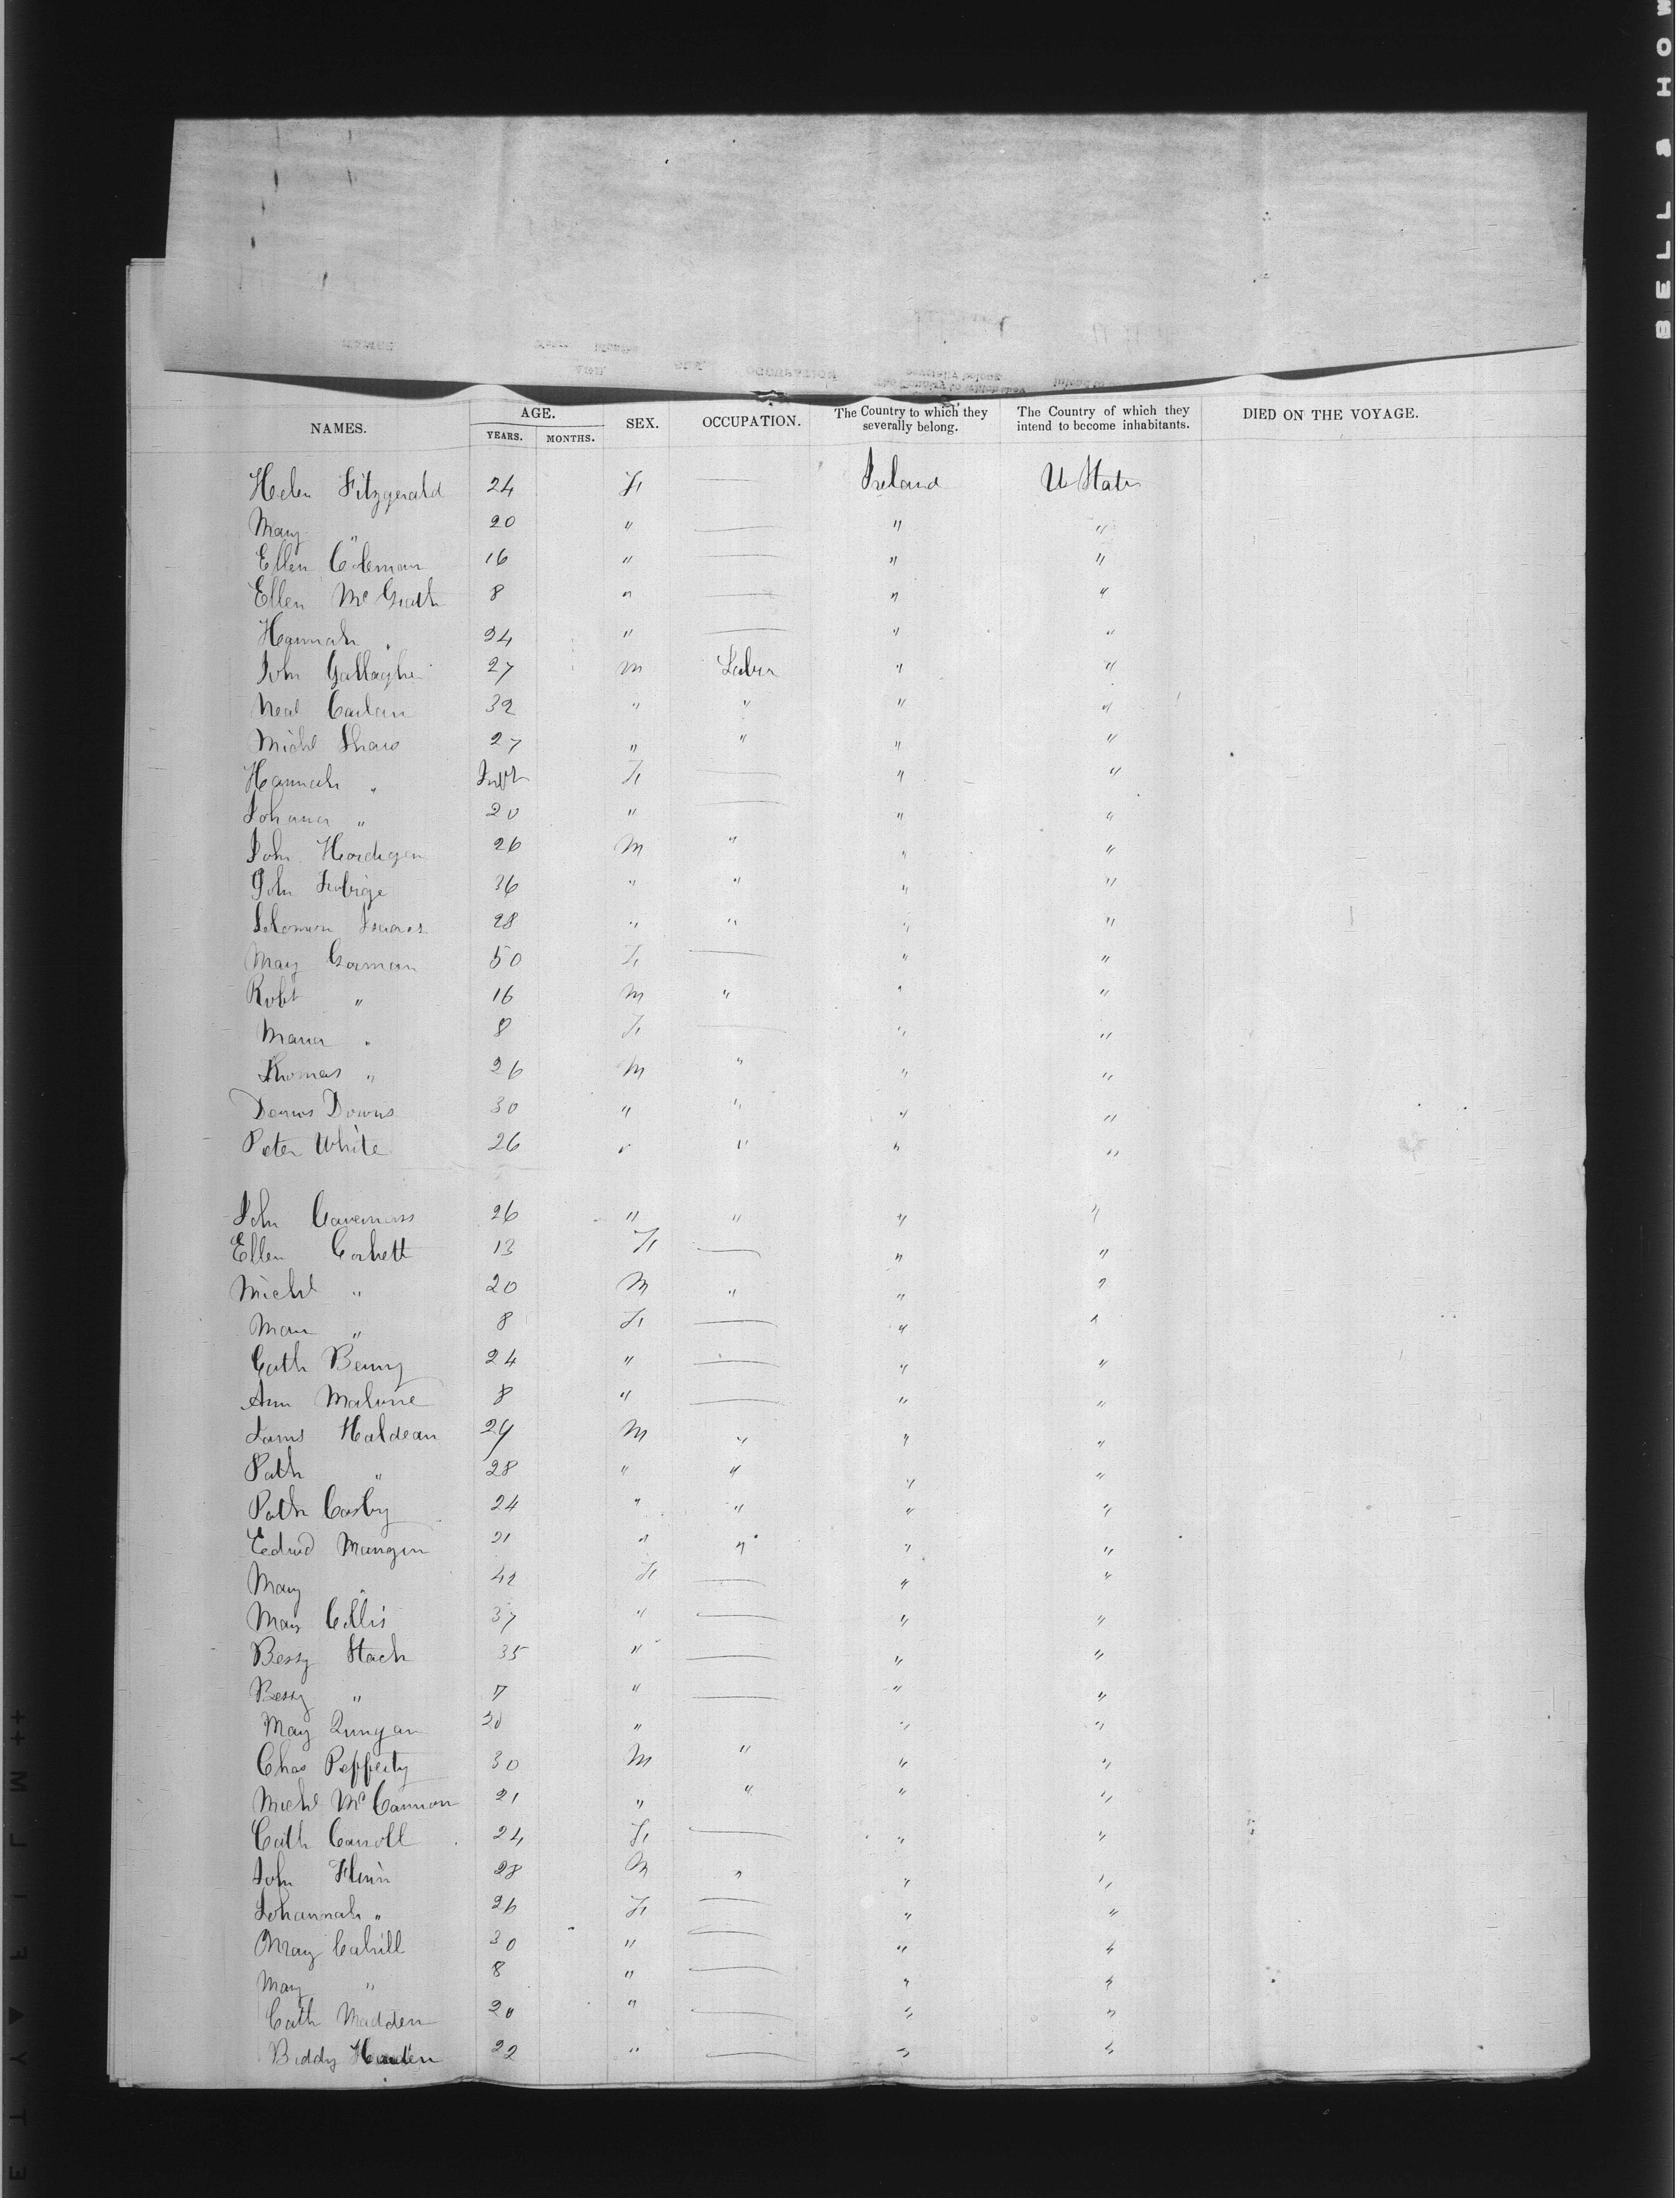 NAMES. AGE. YEARS. MONTHS. SEX. OCCUPATION. The Country to which they severally belong. The Country of which they intend to become inhabitants. DIED ON THE VOYAGE.
Helen Fitzgerald 24 F — Ireland U States
Mary " 20 " — " "
Ellen Coleman 16 " — " "
Ellen McGrath 8 " — " "
Hannah " 24 " — " "
John Gallagher 27 M Labr " "
Neal Carlan 32 " " " "
Michl Shaw 27 " " " "
Hannah " Inft F — " "
Johana " 20 " — " "
John 26 M " " "
John 36 " " " "
Solomon 28 " " " "
Mary Gorman 50 F — " "
Robt " 16 M " " "
Maria " 8 F — " "
Thomas " 26 M " " "
Dennis Downs 30 " " " "
Peter White 26 " " " "
John 26 " " " "
Ellen Corbett 13 F — " "
Michl " 20 M " " "
" 8 F — " "
Cath 24 " — " "
Ann Malone 8 " — " "
James Haldean M " " "
Patk " 28 " " " "
Patk Cosby 24 " " " "
Edwd Mangin 21 " " " "
Mary " 42 F — " "
Mary Collis 37 " — " "
Bessy Stach 35 " — " "
Bessy " 7 " — " "
Mary " — " "
Chas 30 M " " "
Michl McCannon 21 " " " "
Cath Carroll 24 F — " "
John Flinn 28 M " " "
Johannah " 26 F — " "
Mary Cahill 30 " — " "
Mary " 8 " — " "
Cath Madden 20 " — " "
Biddy 22 " — " "
BELL & HOW